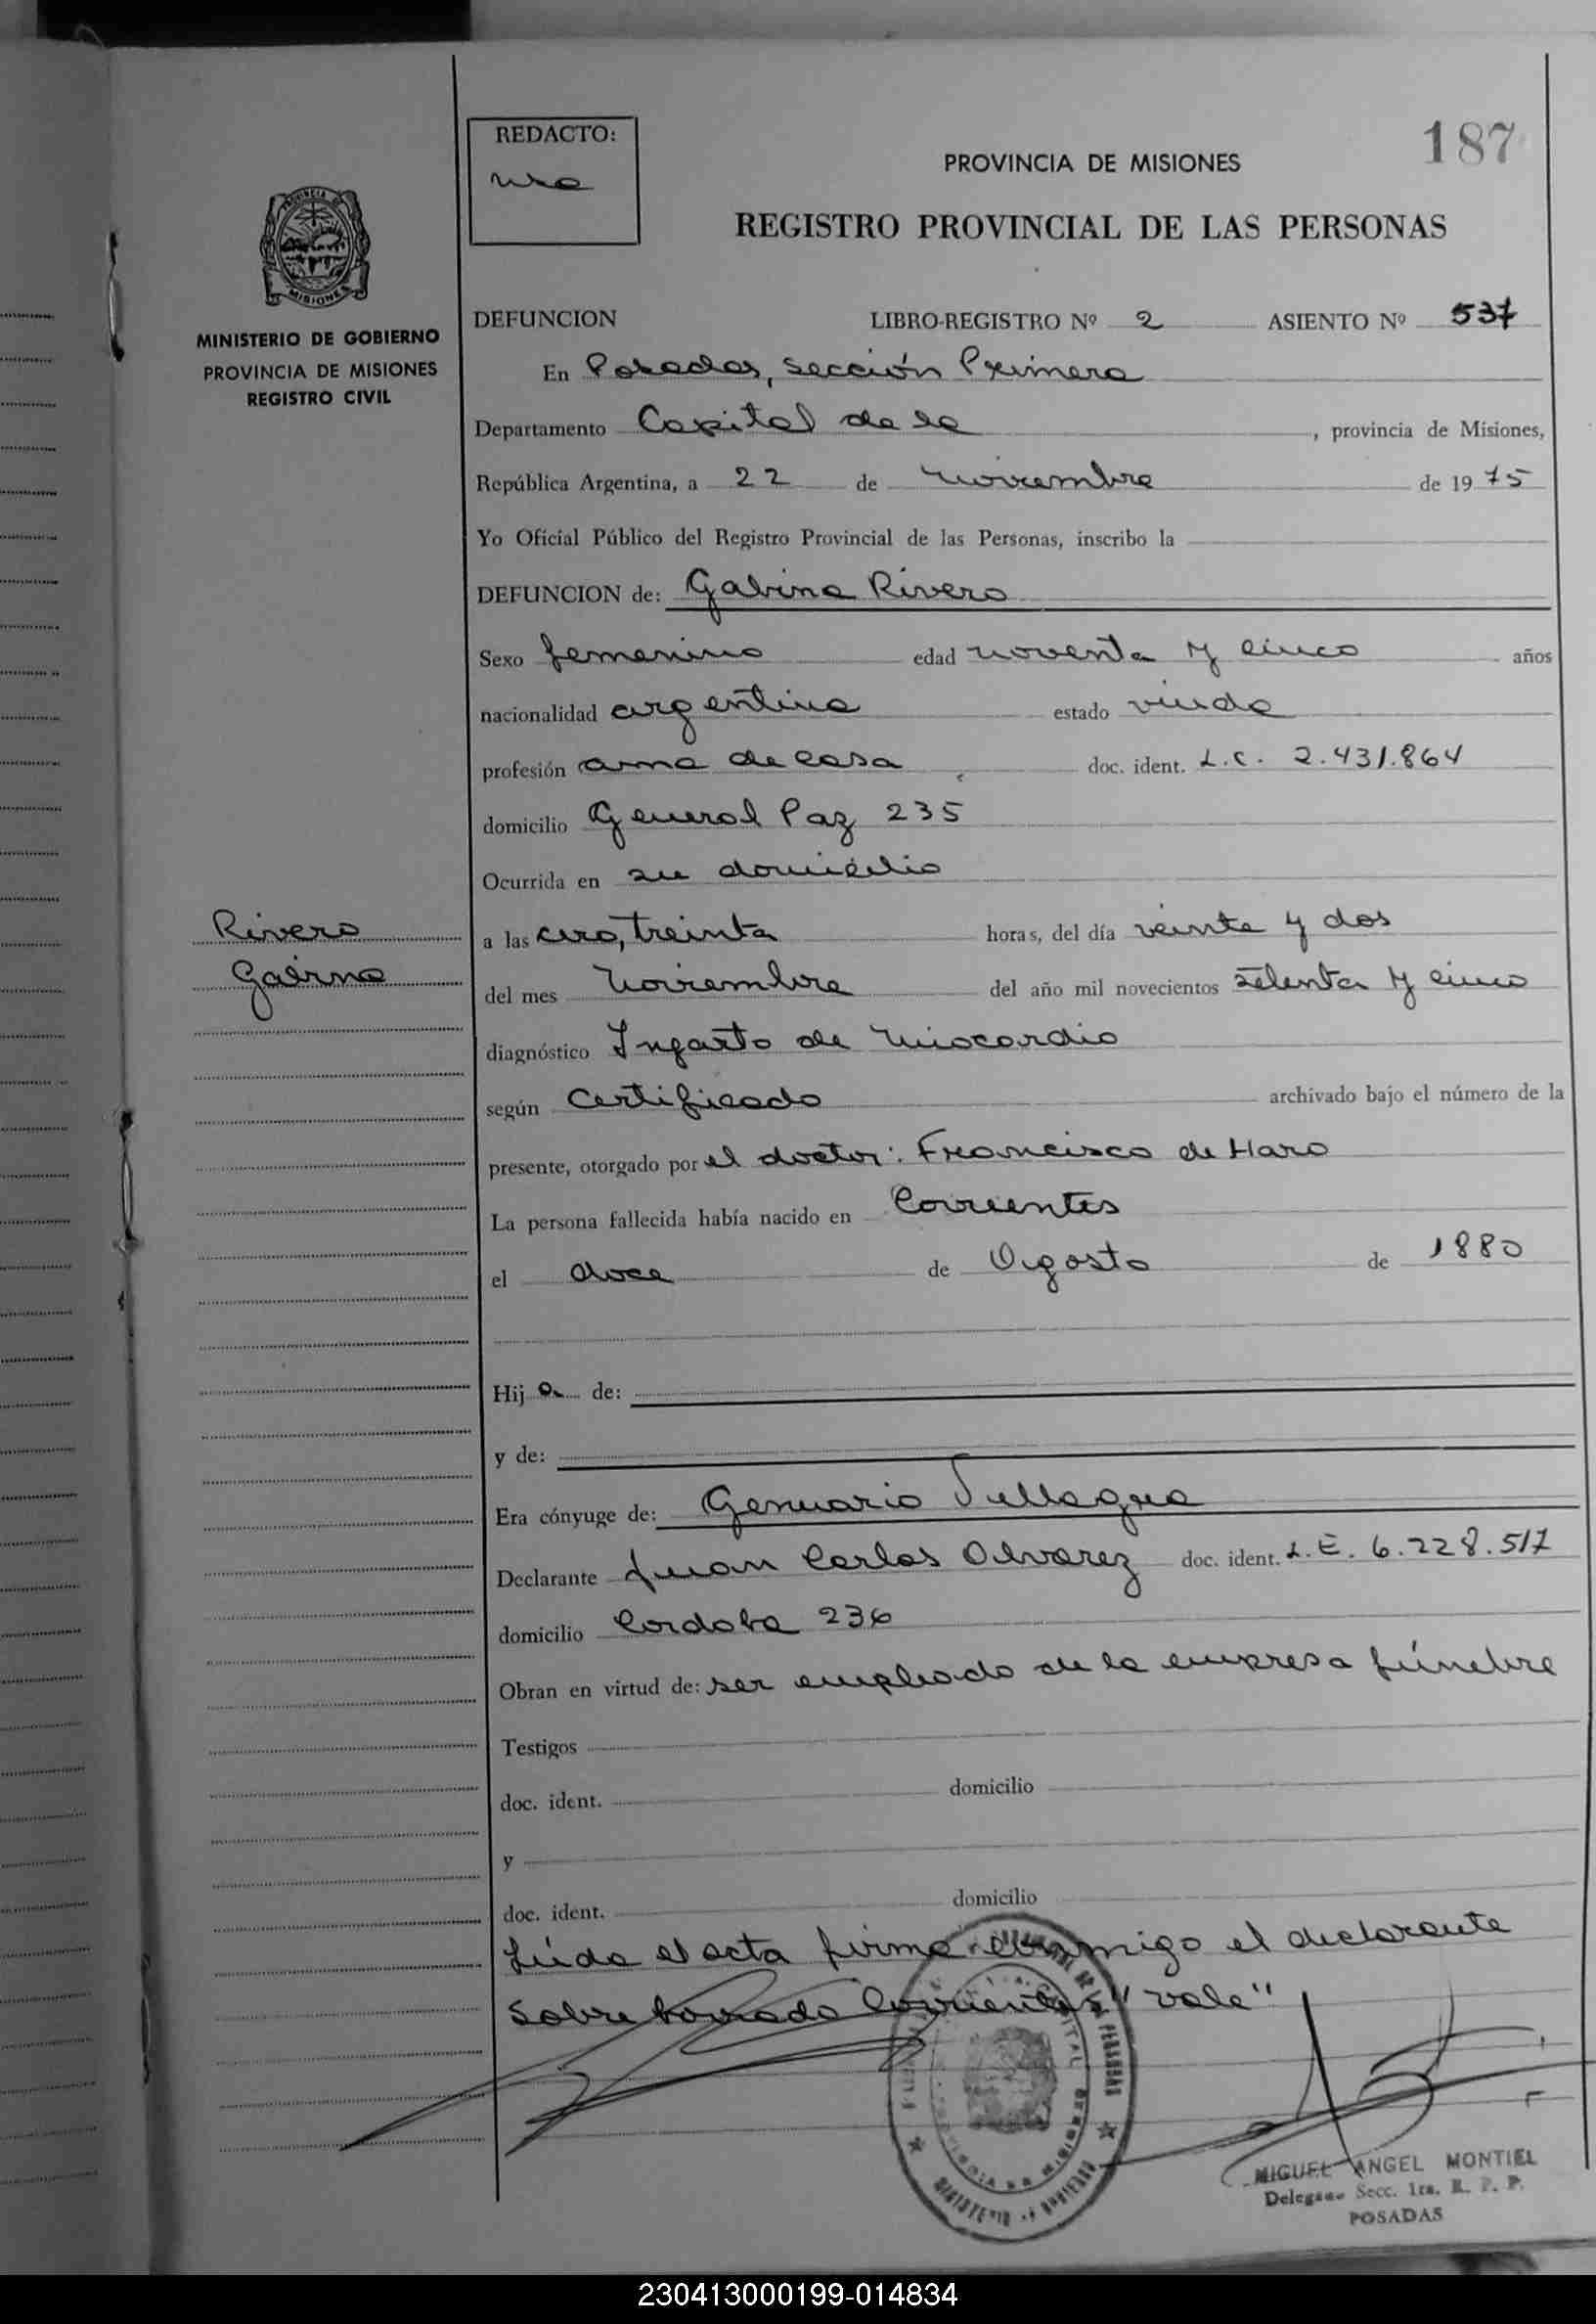 187
REDACTO:
PROVINCIA DE MISIONES
REGISTRO PROVINCIAL DE LAS PERSONAS
PROVINCIA DE
MISIONES
MINISTERIO DE GOBIERNO
PROVINCIA DE MISIONES
REGISTRO CIVIL
DEFUNCION LIBRO-REGISTRO Nº 2 ASIENTO Nº 537
En Posadas, sección Primera
Departamento Capital de la, provincia de Misiones,
República Argentina, a 22 de noviembre de 1975
Yo Oficial Público del Registro Provincial de las Personas, inscribo la
DEFUNCION de: Gabina Rivero
Sexo femenino edad noventa y cinco años
nacionalidad argentina estado viuda
profesión ama de casa doc. ident. L.C. 2.431.864
domicilio General Paz 235
Ocurrida en su domicilio
Rivero
Gabina
a las cero, treinta horas, del día veinte y dos
del mes noviembre del año mil novecientos setenta y cinco
diagnóstico Infarto de miocardio
según Certificado archivado bajo el número de la
presente, otorgado por el doctor: Francisco de Haro
La persona fallecida había nacido en Corrientes
el doce de Agosto de 1880
Hij a de:
y de:
Era cónyuge de: Genuario
Declarante Juan Carlos Alvarez doc. ident. L.E. 6.228.517
domicilio Cordoba 236
Obran en virtud de: ser empleado de la empresa fúnebre
Testigos
doc. ident. domicilio
y
doc. ident. domicilio
Leída el acta firma conmigo el declarante
Sobre borrado Corrientes "vale"
MIGUEL ANGEL MONTIEL
Delegado Secc. 1ra. R. P. P.
POSADAS
230413000199-014834